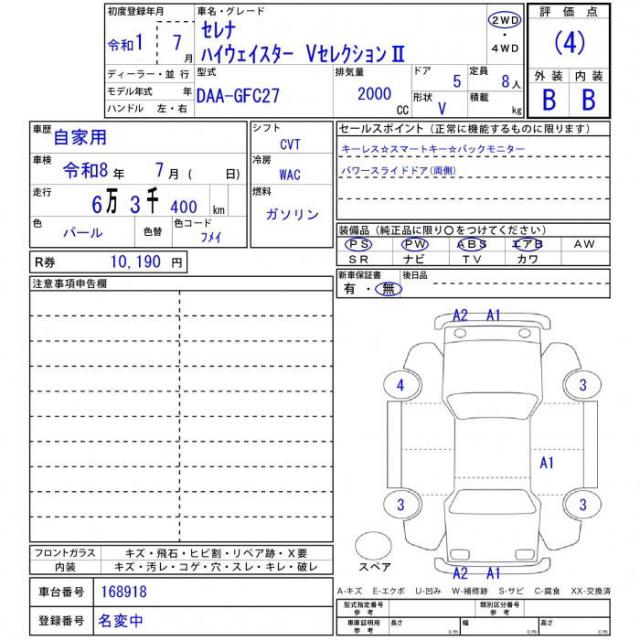 初度登録年月
令和1 7 月
車名・グレード
セレナ
ハイウェイスター VセレクションⅡ
2WD
・
4WD
評価点
(4)
外装 内装
B B
ディーラー・並行
モデル年式 年
ハンドル 左・右
型式
DAA-GFC27
排気量
2000 CC
ドア 5
定員 8人
形状 V
積載 kg
車歴
自家用
車検
令和8 年 7 月 ( 日)
走行
6万 3千 400 km
色
パール
色替
色コード
フメイ
シフト
CVT
冷房
WAC
燃料
ガソリン
セールスポイント(正常に機能するものに限ります)
キーレス☆スマートキー☆バックモニター
パワースライドドア(両側)
装備品(純正品に限り○をつけてください)
PS PW ABS エアB AW
SR ナビ TV カワ
新車保証書
有・無
後日品
R券 10,190 円
注意事項申告欄
A2 A1
4 3
A1
3 3
スペア
A2 A1
フロントガラス キズ・飛石・ヒビ割・リペア跡・X要
内装 キズ・汚レ・コゲ・穴・スレ・キレ・破レ
車台番号 168918
登録番号 名変中
A-キズ E-エクボ U-凹み W-補修跡 S-サビ C-腐食 XX-交換済
型式指定番号 参考
類別区分番号 参考
車庫証明用 参考
長さ cm
幅 cm
高さ cm